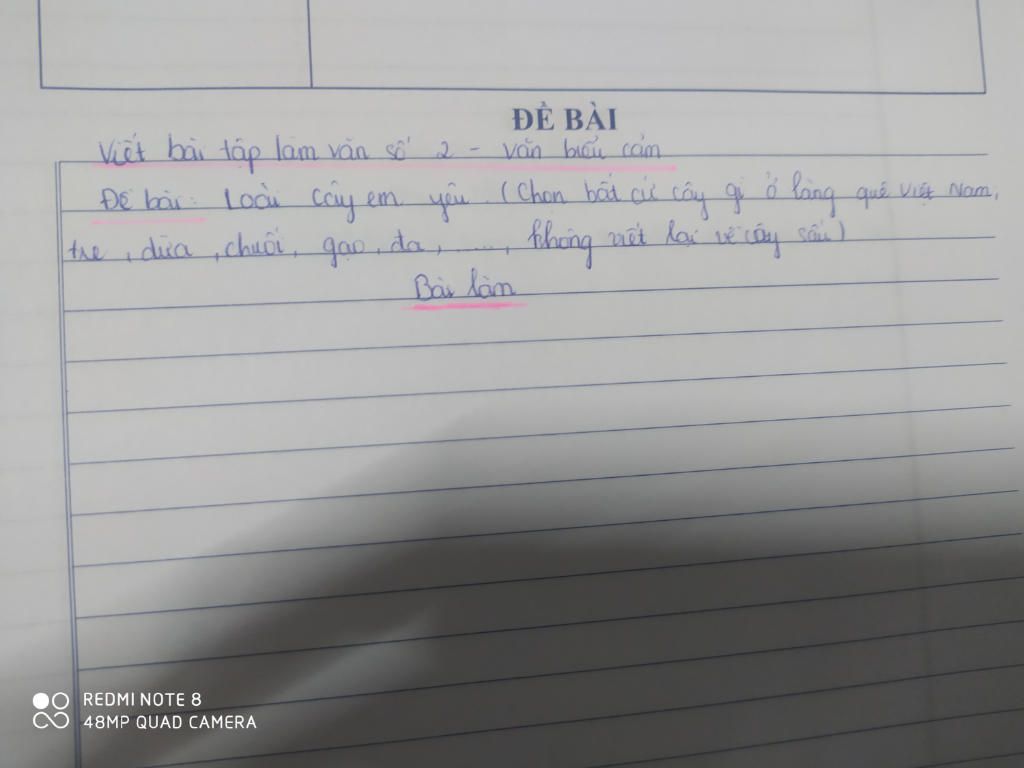 ĐỀ BÀI
Viết bài tập làm văn số 2 - văn biểu cảm
Đề bài: Loài cây em yêu. (Chọn bất cứ cây gì ở làng quê Việt Nam,
tre, dừa, chuối, gạo, đa, ...., không viết lại về cây sấu)
Bài làm
REDMI NOTE 8
48MP QUAD CAMERA